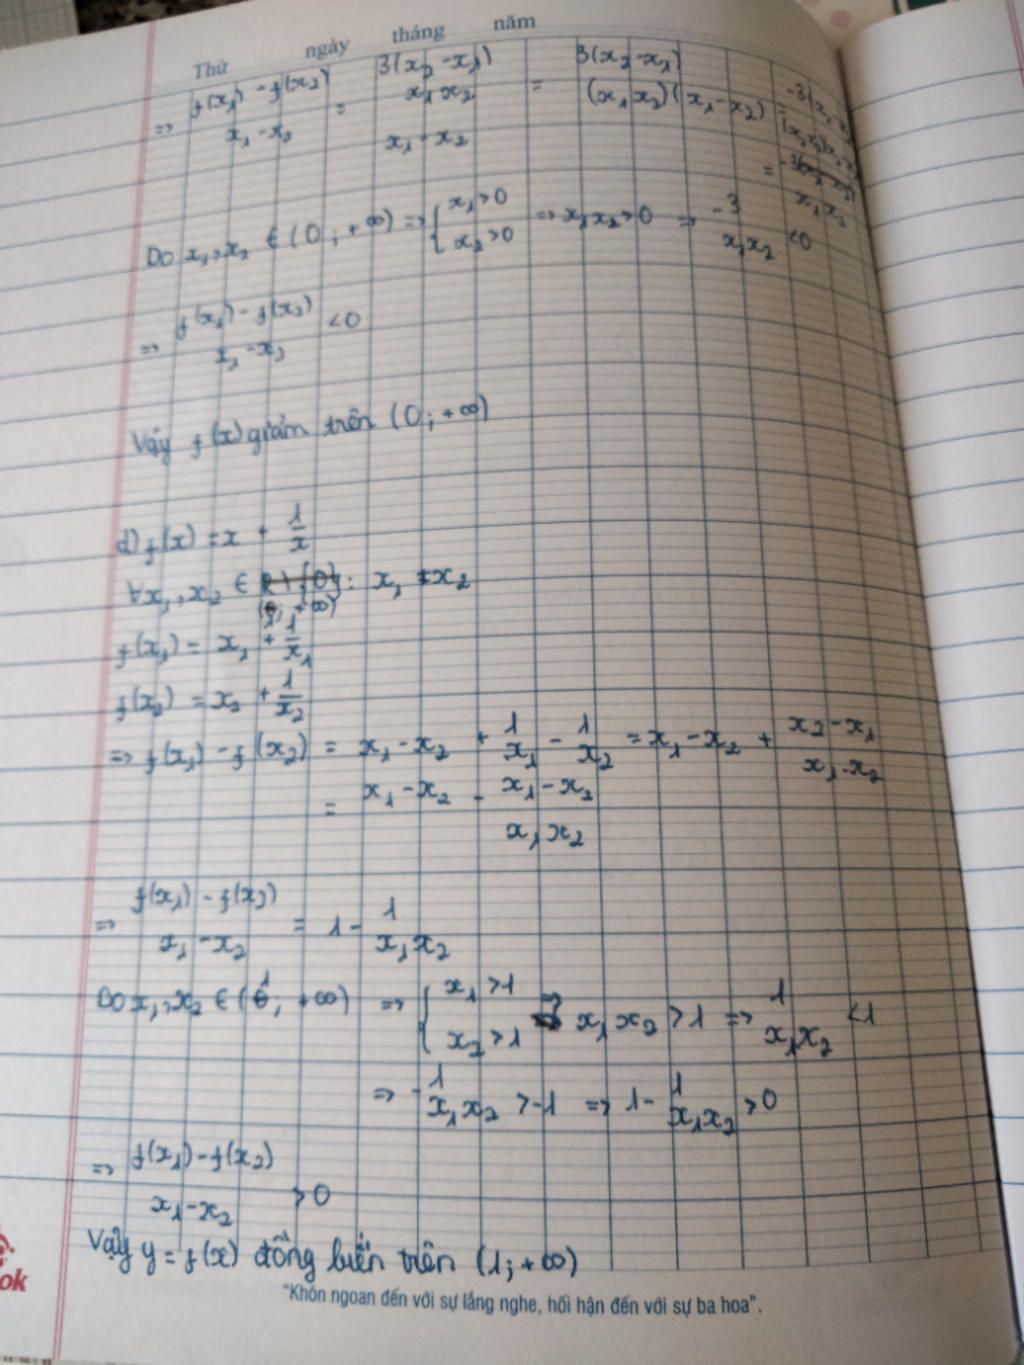 Thứ ngày tháng năm
=> f(x₁) - f(x₂) / x₁ - x₂ = 3(x₂ - x₁) / x₁x₂ / x₁ - x₂ = 3(x₂ - x₁) / (x₁x₂)(x₁ - x₂)
= -3 / x₁x₂
Do x₁, x₂ ∈ (0; +∞) => { x₁ > 0 x₂ > 0 => x₁x₂ > 0 => -3 / x₁x₂ < 0
=> f(x₁) - f(x₂) / x₁ - x₂ < 0
Vậy f(x) giảm trên (0; +∞)
d) f(x) = x + 1/x
∀x₁, x₂ ∈ (1; +∞): x₁ ≠ x₂
f(x₁) = x₁ + 1/x₁
f(x₂) = x₂ + 1/x₂
=> f(x₁) - f(x₂) = x₁ - x₂ + 1/x₁ - 1/x₂ = x₁ - x₂ + x₂ - x₁ / x₁.x₂
= x₁ - x₂ - x₁ - x₂ / x₁x₂
=> f(x₁) - f(x₂) / x₁ - x₂ = 1 - 1 / x₁x₂
Do x₁, x₂ ∈ (1; +∞) => { x₁ > 1 x₂ > 1 => x₁x₂ > 1 => 1 / x₁x₂ < 1
=> -1 / x₁x₂ > -1 => 1 - 1 / x₁x₂ > 0
=> f(x₁) - f(x₂) / x₁ - x₂ > 0
Vậy y = f(x) đồng biến trên (1; +∞)
"Khôn ngoan đến với sự lắng nghe, hối hận đến với sự ba hoa".
ok